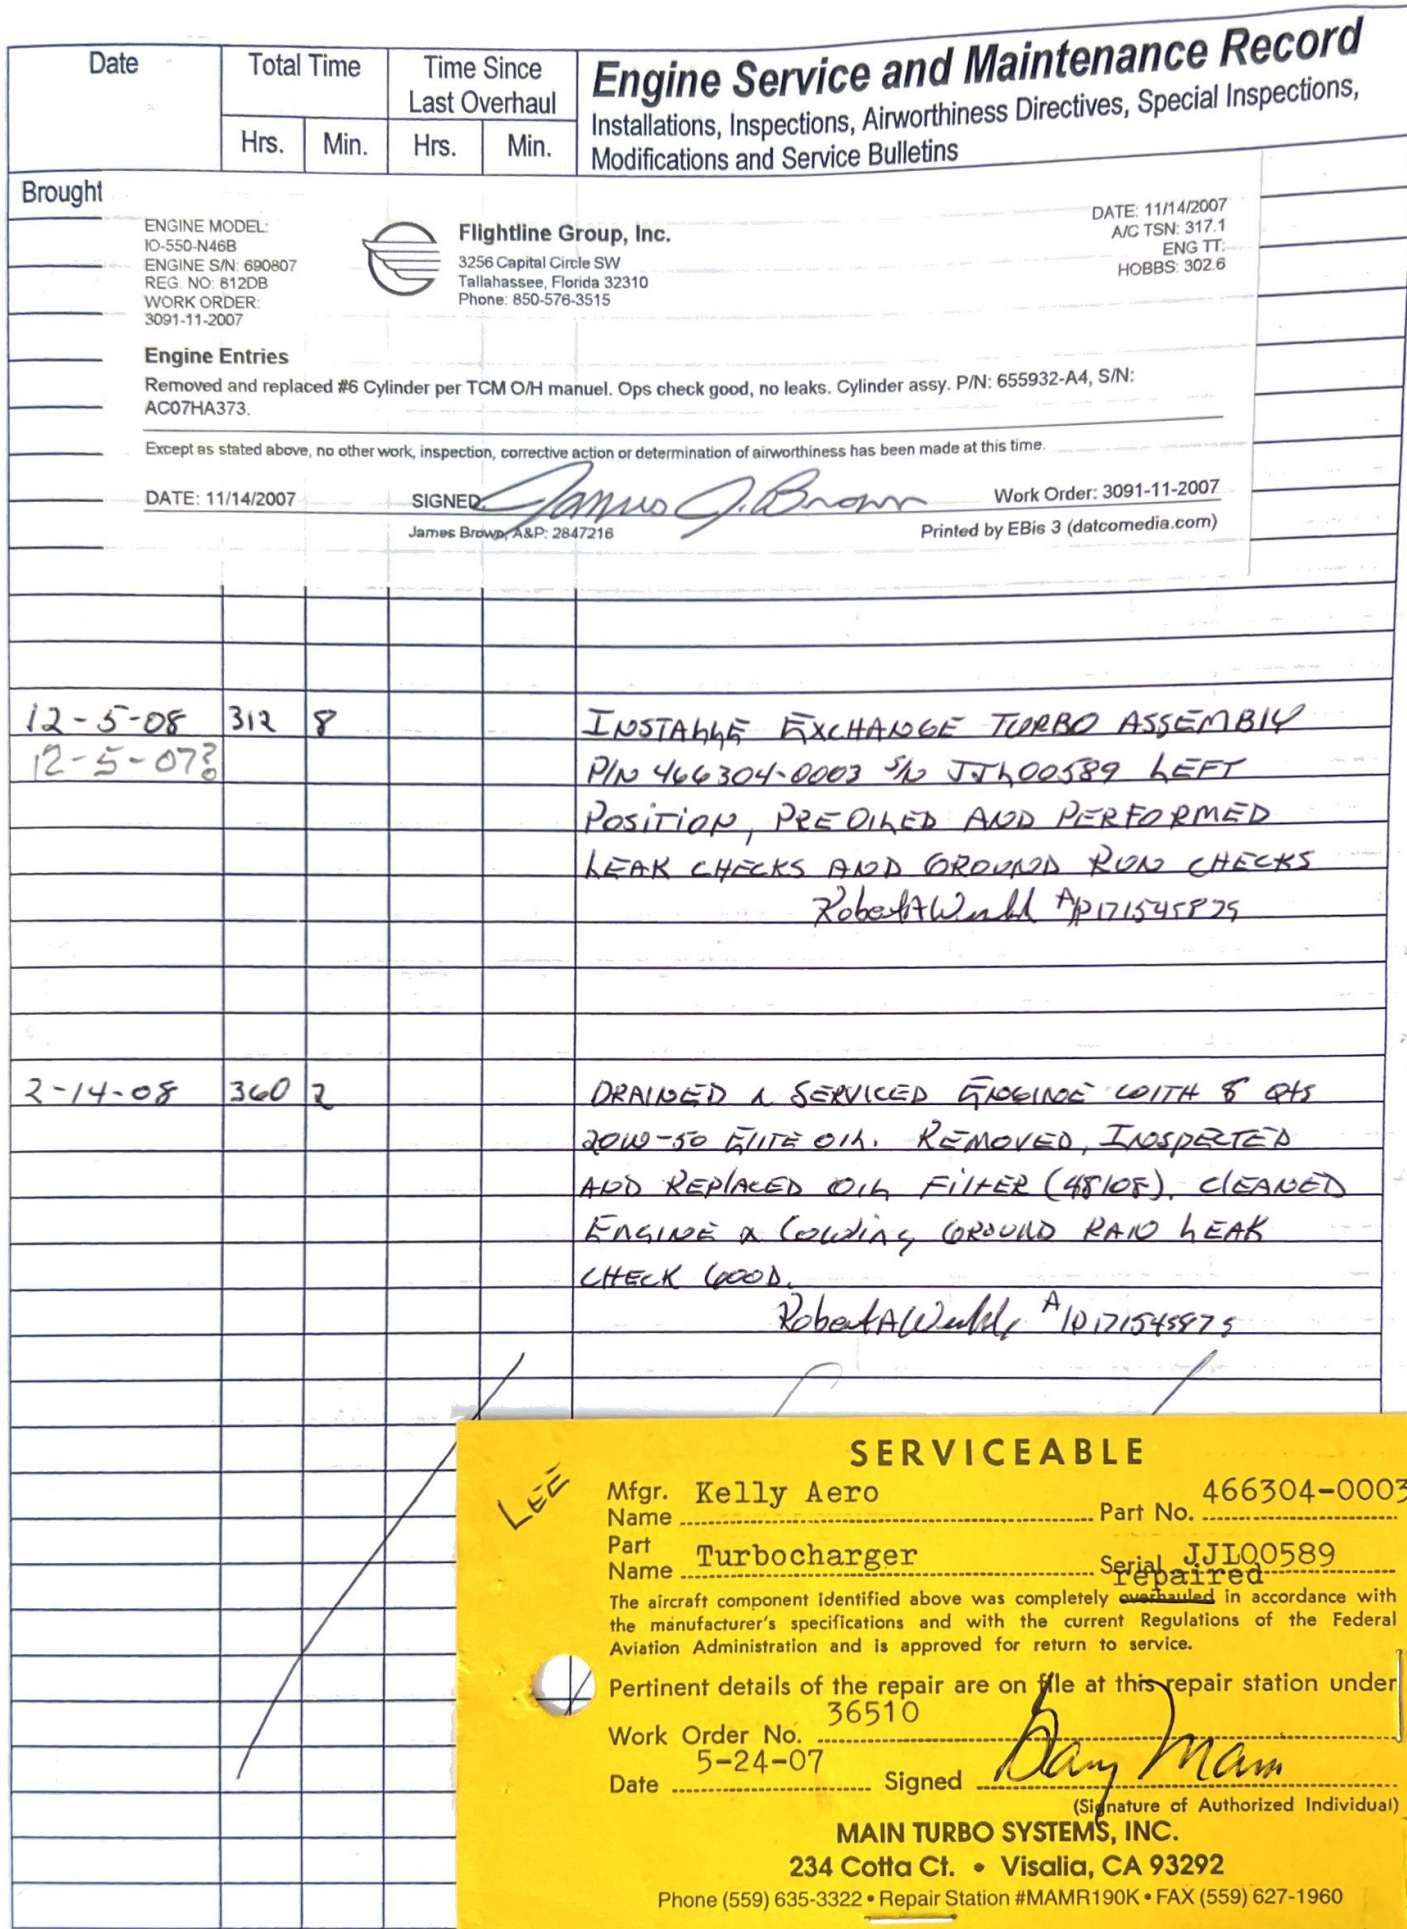 Date
Total Time
Time Since
Last Overhaul
Hrs.
Min.
Hrs.
Min.
Engine Service and Maintenance Record
Installations, Inspections, Airworthiness Directives, Special Inspections,
Modifications and Service Bulletins
Brought
ENGINE MODEL:
IO-550-N46B
ENGINE S/N: 690807
REG. NO: 812DB
WORK ORDER:
3091-11-2007
Flightline Group, Inc.
3256 Capital Circle SW
Tallahassee, Florida 32310
Phone: 850-576-3515
DATE: 11/14/2007
A/C TSN: 317.1
ENG TT:
HOBBS: 302.6
Engine Entries
Removed and replaced #6 Cylinder per TCM O/H manuel. Ops check good, no leaks. Cylinder assy. P/N: 655932-A4, S/N:
AC07HA373.
Except as stated above, no other work, inspection, corrective action or determination of airworthiness has been made at this time.
DATE: 11/14/2007 SIGNED: James J. Brown Work Order: 3091-11-2007
James Brown, A&P: 2847216 Printed by EBis 3 (datcomedia.com)
12-5-08 312 8 INSTALLE EXCHANGE TURBO ASSEMBLY
12-5-07? P/N 466304-0003 S/N JJL00589 LEFT
POSITION, PREOILED AND PERFORMED
LEAK CHECKS AND GROUND RUN CHECKS
Robert A
2-14-08 360 2 DRAINED & SERVICED ENGINE WITH 8 QTS
20W-50 ELITE OIL. REMOVED, INSPECTED
AND REPLACED OIL FILTER (48108). CLEANED
ENGINE & COWLING GROUND RAN LEAK
CHECK GOOD.
Robert A
LEE
SERVICEABLE
Mfgr. Name Kelly Aero Part No. 466304-0003
Part Name Turbocharger Serial JJL00589
repaired
The aircraft component identified above was completely overhauled in accordance with
the manufacturer's specifications and with the current Regulations of the Federal
Aviation Administration and is approved for return to service.
Pertinent details of the repair are on file at this repair station under
Work Order No. 36510
Date 5-24-07 Signed Gary Main
(Signature of Authorized Individual)
MAIN TURBO SYSTEMS, INC.
234 Cotta Ct. • Visalia, CA 93292
Phone (559) 635-3322 • Repair Station #MAMR190K • FAX (559) 627-1960